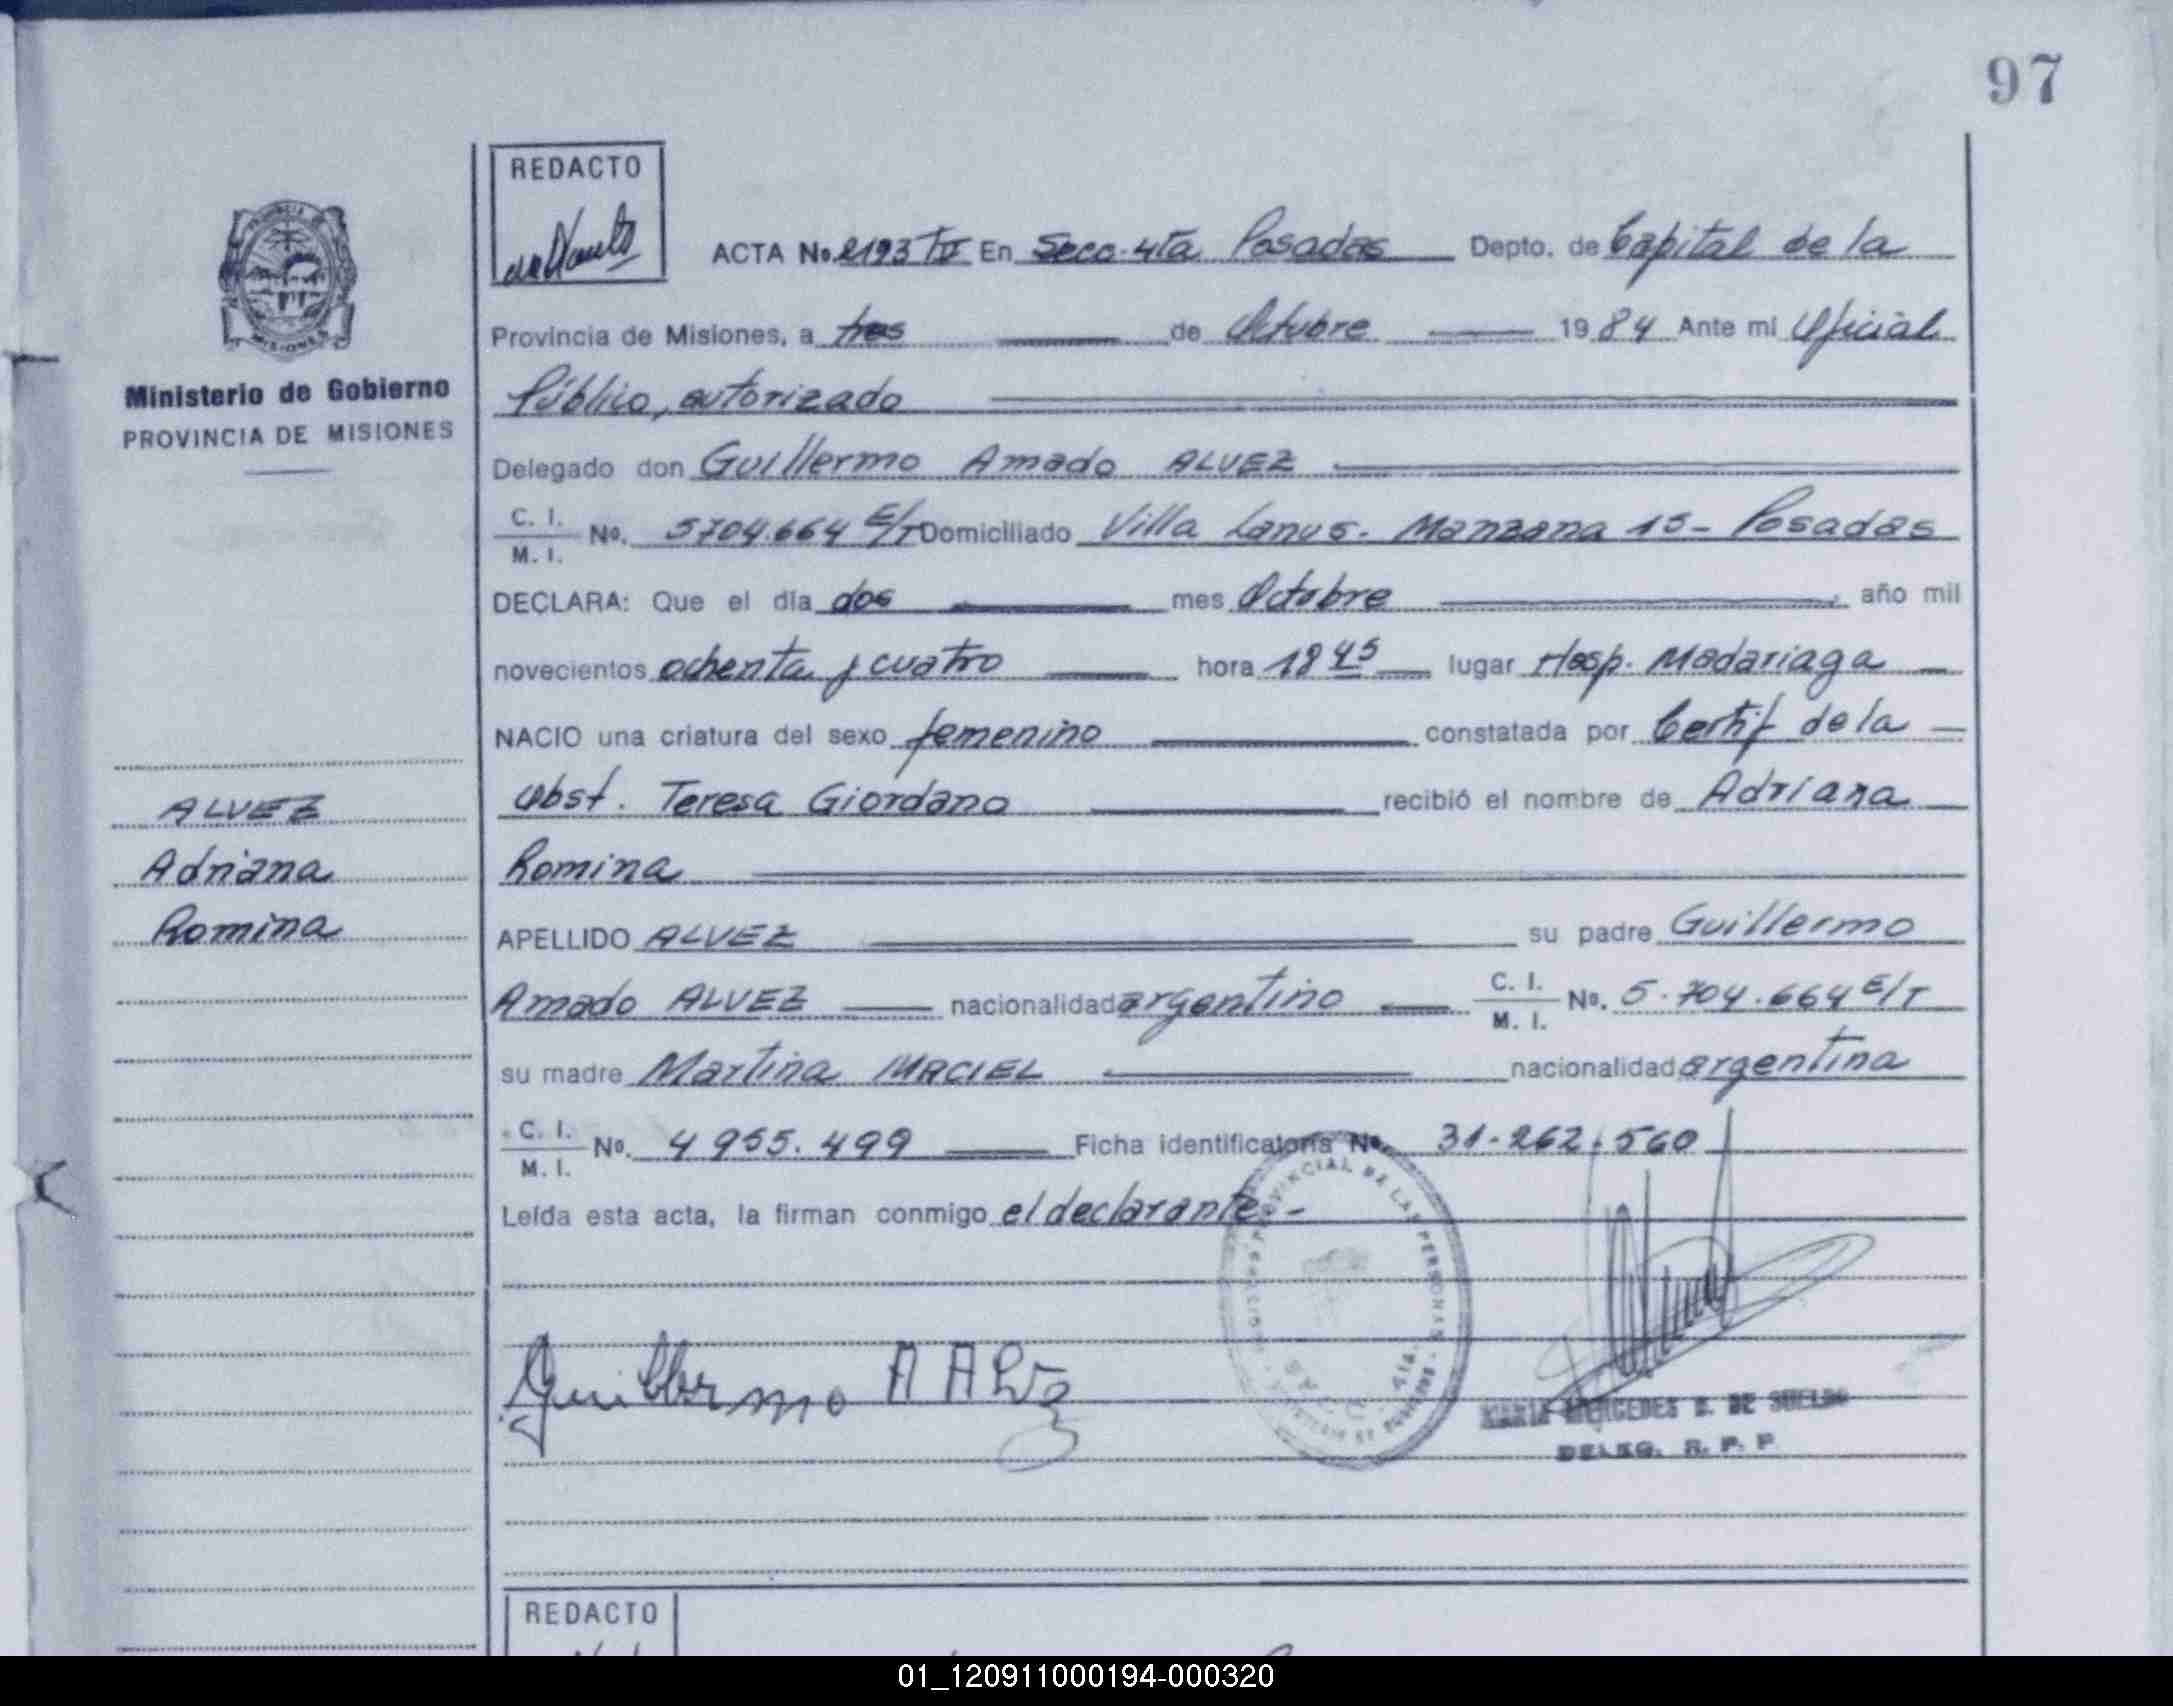 97
REDACTO
ACTA No. 2193 TIV En Secc. 4ta Posadas Depto. de Capital de la
Provincia de Misiones, a tres de Octubre 1984 Ante mi Oficial
Público, autorizado
Delegado don Guillermo Amado ALVEZ
C. I. / M. I. No. 5704.664 E/T Domiciliado Villa Lanus. Manzana 15 - Posadas
DECLARA: Que el día dos mes Octubre, año mil
novecientos ochenta y cuatro hora 18 45 lugar Hosp. Madariaga
NACIO una criatura del sexo femenino constatada por Certif de la
Obst. Teresa Giordano recibió el nombre de Adriana
Romina
APELLIDO ALVEZ su padre Guillermo
Amado ALVEZ nacionalidad argentino C. I. / M. I. No. 5.704.664 E/T
su madre Martina MACIEL nacionalidad argentina
C. I. / M. I. No. 4955.499 Ficha identificatoria No. 31.262.560
Leída esta acta, la firman conmigo el declarante.-
Guillermo A Alvez
MARIA MERCEDES S. DE SUELDO
DELEG. R. P. P
PROVINCIA DE MISIONES
Ministerio de Gobierno
PROVINCIA DE MISIONES
ALVEZ
Adriana
Romina
REDACTO
01_120911000194-000320